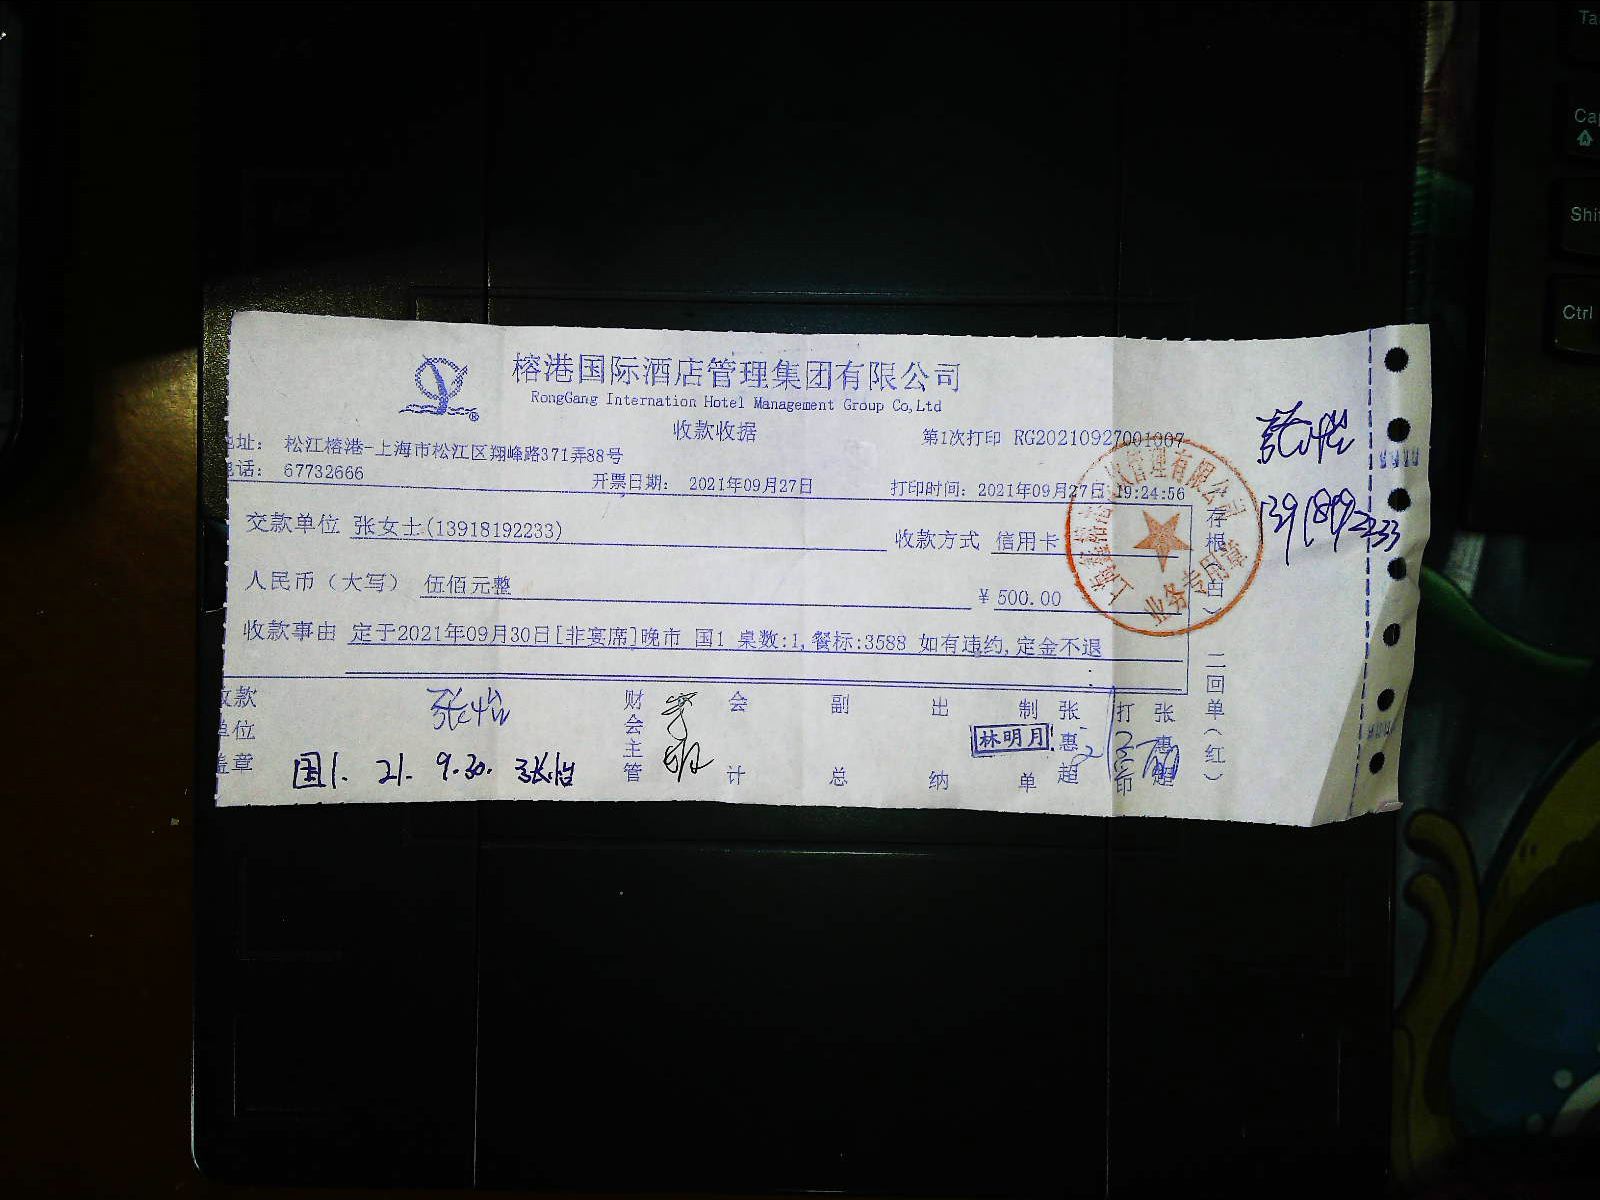 榕港国际酒店管理集团有限公司
RongGang Internation Hotel Management Group Co,Ltd
收款收据
第1次打印 RG20210927001007
地址： 松江榕港-上海市松江区翔峰路371弄88号
电话： 67732666
开票日期： 2021年09月27日
打印时间： 2021年09月27日 19:24:56
交款单位 张女士(13918192233)
收款方式 信用卡
人民币（大写） 伍佰元整
¥ 500.00
收款事由 定于2021年09月30日[非宴席]晚市 国1 桌数:1,餐标:3588 如有违约,定金不退
收款单位盖章
张怡
国1. 21. 9.30. 张怡
财会主管
会计
副总
出纳
林明月
制单
张惠超
打印
张惠超
存根（白）
二回单（红）
管理有限公司
业务专用章
张怡
13918192233
Ta
Cap
Shi
Ctrl